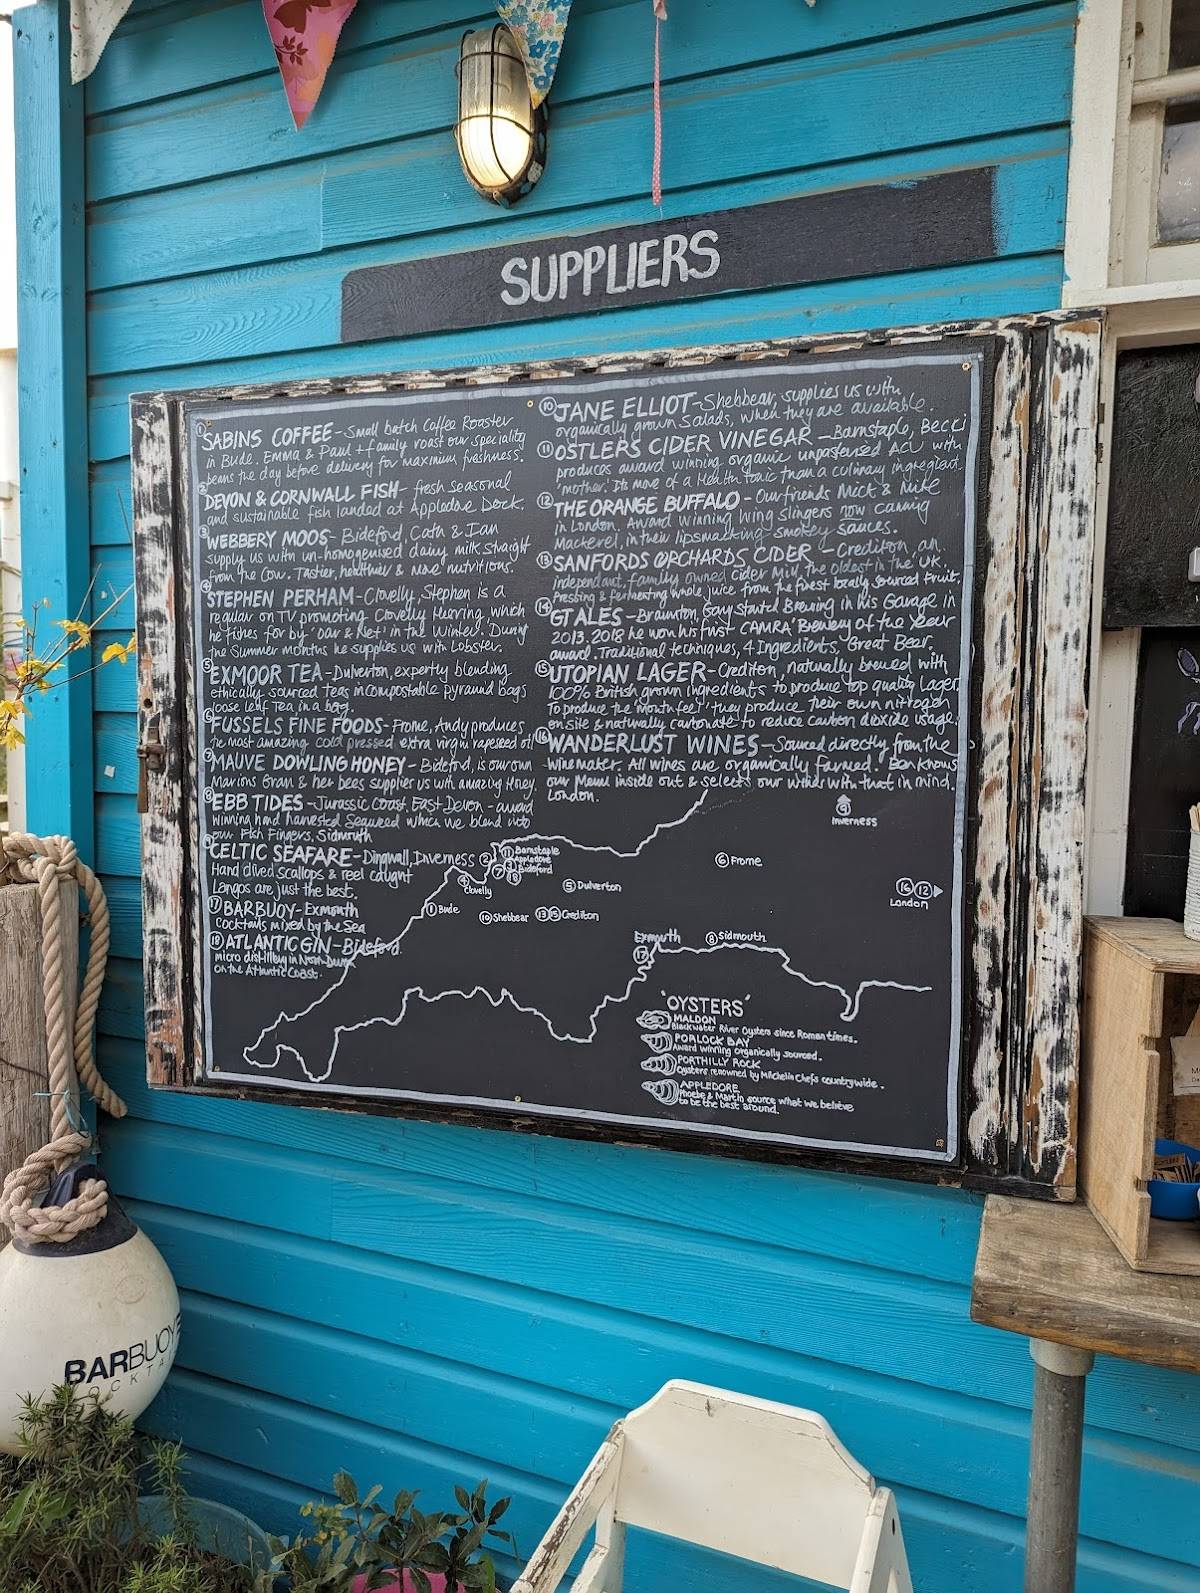 SUPPLIERS
① SABINS COFFEE - Small batch Coffee Roaster
in Bude. Emma & Paul + family roast our speciality
beans the day before delivery for maximum freshness.
② DEVON & CORNWALL FISH - fresh seasonal
and sustainable fish landed at Appledore Dock.
③ WEBBERY MOOS - Bideford, Cath & Ian
supply us with un-homogenised dairy milk straight
from the Cow. Tastier, healthier & more nutritious.
④ STEPHEN PERHAM - Clovelly, Stephen is a
regular on TV promoting Clovelly Herring, which
he fishes for by 'Oar & Net' in the Winter. During
the Summer months he supplies us with Lobster.
⑤ EXMOOR TEA - Dulverton, expertly blending
ethically sourced teas in compostable pyramid bags
loose leaf Tea in a bag.
⑥ FUSSELS FINE FOODS - Frome, Andy produces
the most amazing cold pressed extra virgin rapeseed oil
⑦ MAUVE DOWLING HONEY - Bideford, is our own
Marions Gran & her bees supplier us with amazing Honey.
⑧ EBB TIDES - Jurassic Coast, East Devon - award
winning hand harvested Seaweed which we blend into
our Fish Fingers, Sidmouth
⑨ CELTIC SEAFARE - Dingwall, Inverness
Hand dived scallops & reel caught
Langos are just the best.
⑰ BARBUOY - Exmouth
cocktails mixed by the Sea
⑱ ATLANTIC GIN - Bideford.
micro distillery in North Devon
on the Atlantic Coast.
⑩ JANE ELLIOT - Shebbear, supplies us with
organically grown Salads, when they are available.
⑪ OSTLERS CIDER VINEGAR - Barnstaple, Becci
produces award winning organic unpasterised ACV with
'mother.' Its more of a Health tonic than a culinary ingredient.
⑫ THE ORANGE BUFFALO - Our friends Mick & Nite
in London. Award winning wing slingers now caning
Mackerel, in their lipsmacking smokey sauces.
⑬ SANFORDS ORCHARDS CIDER - Crediton, an
independant, family owned cider Mill, the oldest in the UK.
Pressing & fermenting whole juice from the finest locally sourced fruit.
⑭ GT ALES - Braunton, Gary started Brewing in his Garage in
2013. 2018 he won his first CAMRA 'Brewery of the year
award. Traditional techniques, 4 Ingredients, Great Beer.
⑮ UTOPIAN LAGER - Crediton, naturally brewed with
100% British grown ingredients to produce top quality Lager.
To produce the 'mouth feel' they produce their own nitrogen
on site & naturally carbonate to reduce carbon dioxide usage.
⑯ WANDERLUST WINES - Sourced directly from the
winemaker. All wines are organically farmed. Ben knows
our Menu inside out & selects our wines with that in mind.
London.
⑨ Inverness
② ⑪ Barnstaple
Appledore
⑦ ③ Bideford
⑱
④ Clovelly
⑤ Dulverton
⑥ Frome
⑯ ⑫
London
① Bude
⑩ Shebbear
⑬ ⑮ Crediton
Exmouth
⑰
⑧ Sidmouth
'OYSTERS'
MALDON
Blackwater River Oysters since Roman times.
PORLOCK BAY
Award winning organically sourced.
PORTHILLY ROCK
Oysters renowned by Michelin Chefs countrywide.
APPLEDORE
Phoebe & Martin source what we believe
to be the best around.
BARBUOY